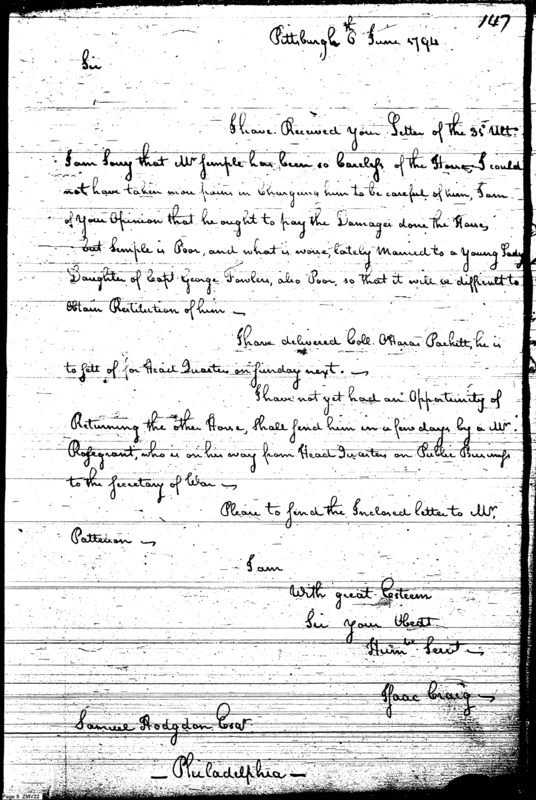 147
Pittsburgh 6th June 1794
Sir
I have Received your Letter of the 31st Ult.
I am Sorry that Mr Semple has been so Careless of the Horse, I could
not have taken more pains in Charging him to be careful of him, I am
of your Opinion that he ought to pay the Damages done the Horse,
but Semple is Poor, and what is worse, lately Married to a Young Lady
Daughter of Capt George Fowler, also Poor, so that it will be difficult to
Obtain Restitution of him —
I have delivered Coll. OHaras Packett, he is
to sett of for Head Quarters on Sunday next. —
I have not yet had an Opportunity of
Returning the other Horse, Shall send him in a few days by a Mr
Rosegrant, who is on his way from Head Quarters on Public Business
to the Secretary of War —
Please to send the Inclosed letter to Mr.
Patterson —
I am
With great Esteem
Sir your Obedt
Humble Servt —
Isaac Craig —
Samuel Hodgdon Esqr
— Philadelphia —